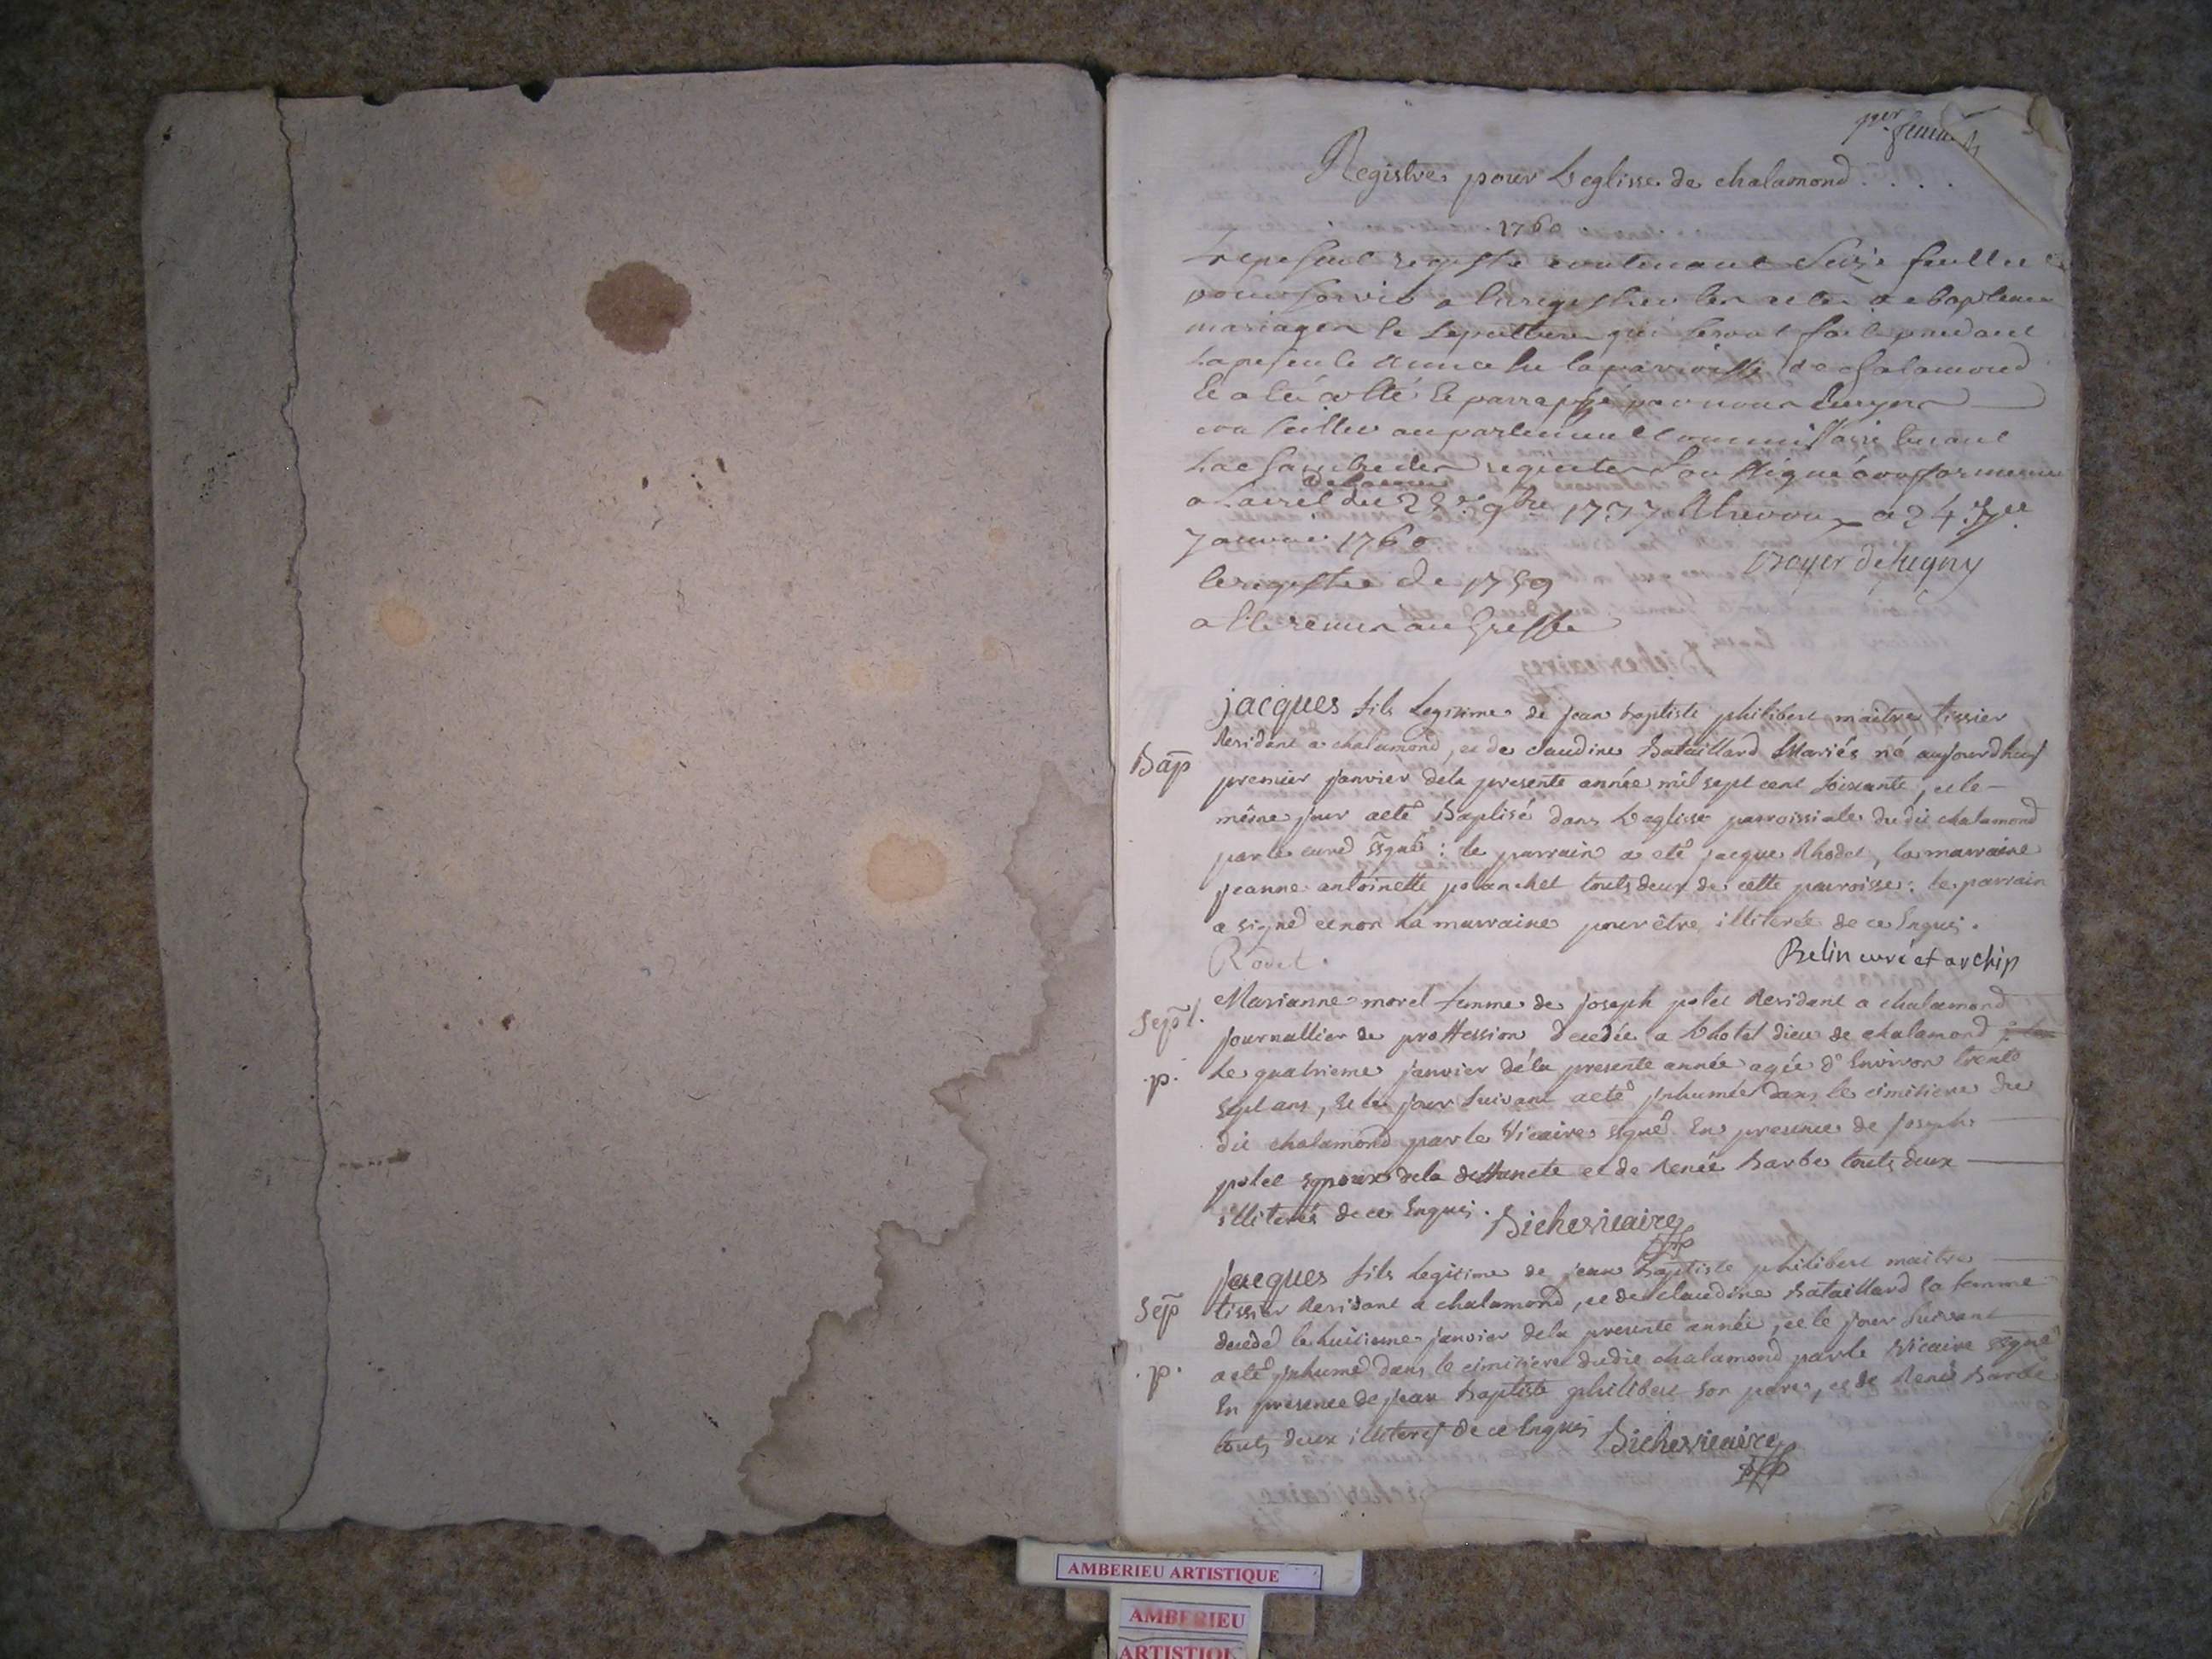 1er feuill
Registre pour Leglisse de chalamond....
1760
Le present registre contenant seize feuillets
pour servir a Enregistrer les actes de baptemes
mariages et sepultures qui seront fait pendant
La presente année en la parroisse de chalamond
et a été cotté et parraphé par nous
conseiller au parlement commissaire tenant
La chambre des requetes soussigné conformement
a Larret du 29 9bre 1737 A trevoux ce 24
Janvier 1760
le registre de 1759
a été remis au Greffe
jacques fils Legitime de jean baptiste philibert maitre tissier
Bap
Residant a chalamond, et de claudine Bataillard Mariés né aujourdhuy
premier janvier dela presente année mil sept cent soixante, et le
même jour aeté Baptisé dans Leglisse parroissiale du dit chalamond
par le curé sgné: le parrain a eté jacque Rhodet, la marraine
jeanne antoinette planchet touts deux de cette parroisse: le parrain
a signé et non La marraine pour être illiterée de ce Enquis.
Rodet. Belin curé et archip
Marianne morel femme de joseph polet Residant a chalamond
Sept.
journallier de proffession decedée a Lhotel dieu de chalamond
.p.
Le quatrieme janvier déla presente année agée d'Environ trente
sept ans, et le jour suivant aeté Inhumée dans le cimitiere du
dit chalamond par le Vicaire sgné En presence de joseph
polet Epoux dela deffuncte et de Renée Barbe touts deux
illiterés de ce Enquis. Biche vicaire
jacques fils Legitime de jean Baptiste philibert maitre
Sep
tissier Residant a chalamond, et de claudine Bataillard sa femme
decedé le huitieme janvier dela presente année, et le jour suivant
.p.
aeté Inhumé dans le cimitiere dudit chalamond par le Vicaire sgné
En presence de jean Baptiste philibert son pere, et de René Barbe
touts deux illiterés de ce Enquis Biche vicaire
AMBERIEU ARTISTIQUE
AMBERIEU